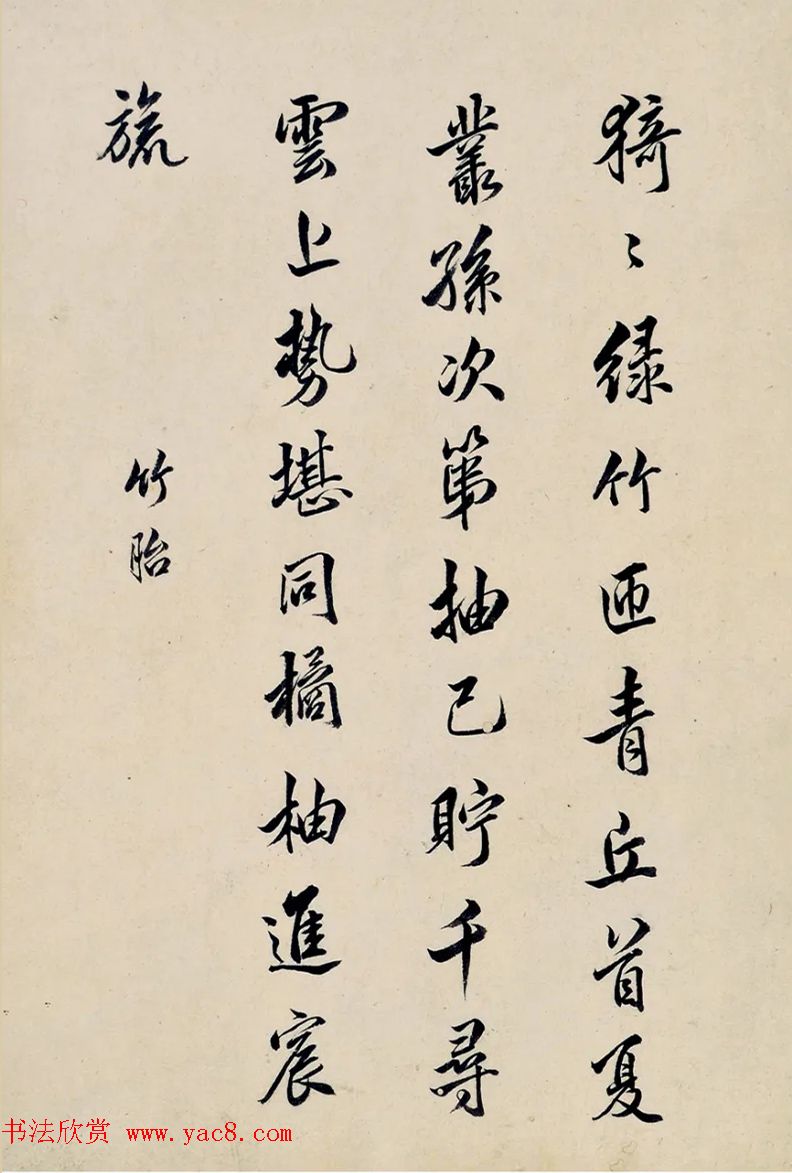 猗〻綠竹匝青丘首夏
叢孫次第抽已貯千尋
雲上勢堪同橘柚進宸
旒
竹胎
书法欣赏 www.yac8.com